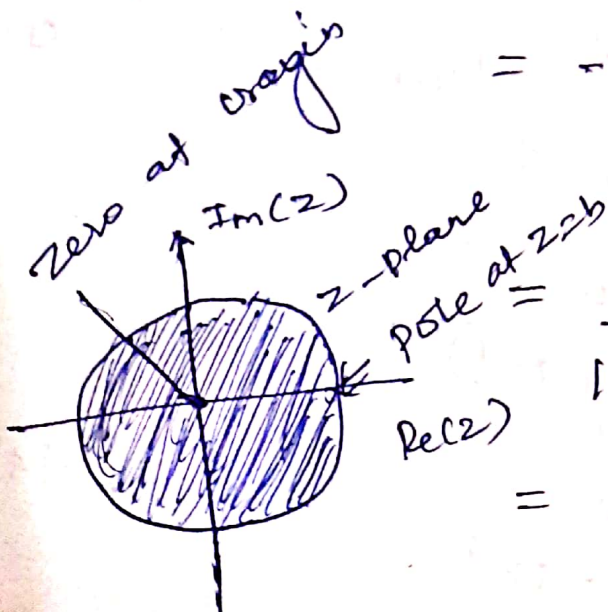 zero at oragin
Im(z)
z-plane
pole at z=b
Re(z)
=
=
=